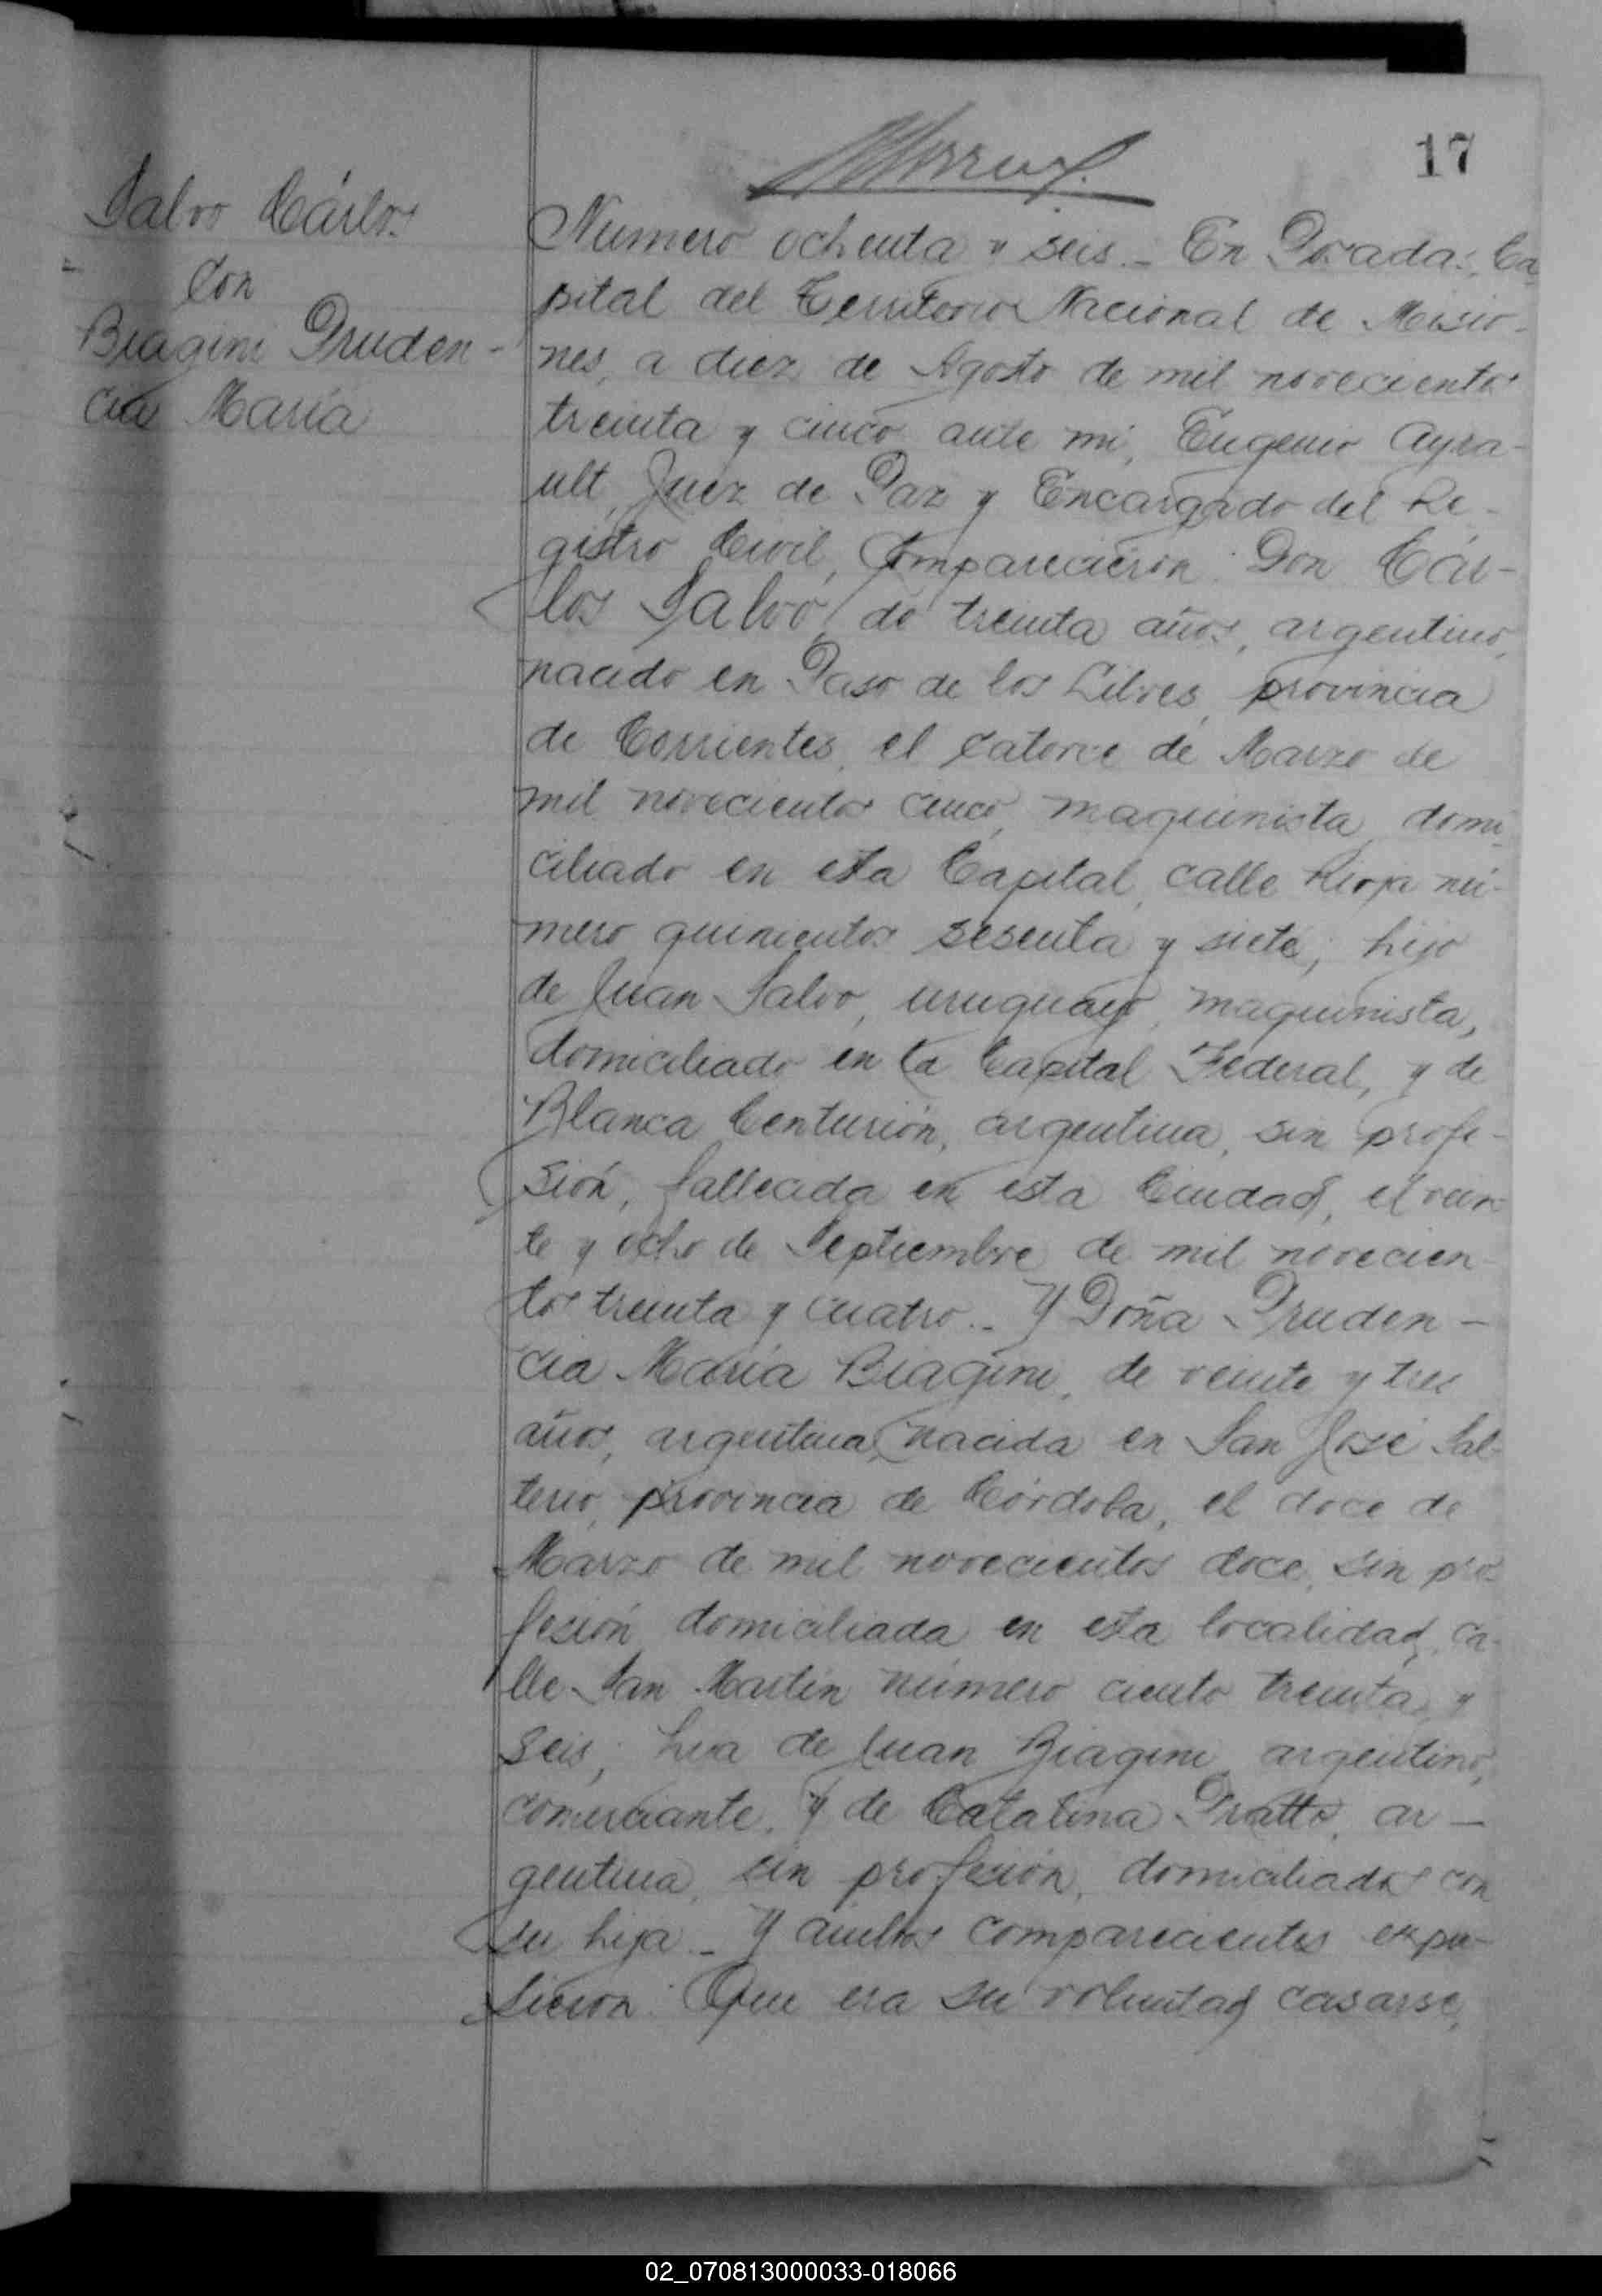 17
Salvo Cárlos
con
Biagini Pruden-
cia María
Número ochenta y seis.- En Posadas, Ca
pital del Territorio Nacional de Misio-
nes, a diez de Agosto de mil novecientos
treinta y cinco ante mi, Eugenio Ayra-
ult, Juez de Paz y Encargado del Re-
gistro Civil, Comparecieron: Don Cár-
los Salvo, de treinta años, argentino,
nacido en Paso de los Libres, provincia
de Corrientes, el catorce de Marzo de
mil novecientos cinco, maquinista, domi-
ciliado en esta Capital, calle Rioja nú-
mero quinientos sesenta y siete; hijo
de Juan Salvo, uruguayo, maquinista,
domiciliado en la Capital Federal, y de
Blanca Centurión, argentina, sin profe-
sión, fallecida en esta Ciudad, el vein-
te y ocho de Septiembre de mil novecien-
tos treinta y cuatro.- Y Doña Pruden-
cia María Biagini, de veinte y tres
años, argentina, nacida en San José Sal-
terio, provincia de Córdoba, el doce de
Marzo de mil novecientos doce, sin pro-
fesión, domiciliada en esta localidad, ca-
lle San Martín número ciento treinta y
seis; hija de Juan Biagini, argentino,
comerciante, y de Catalina Pratto, ar-
gentina, sin profesión, domiciliados con
su hija.- Y ámbos comparecientes expu-
sieron: Que era su voluntad casarse,
02_070813000033-018066